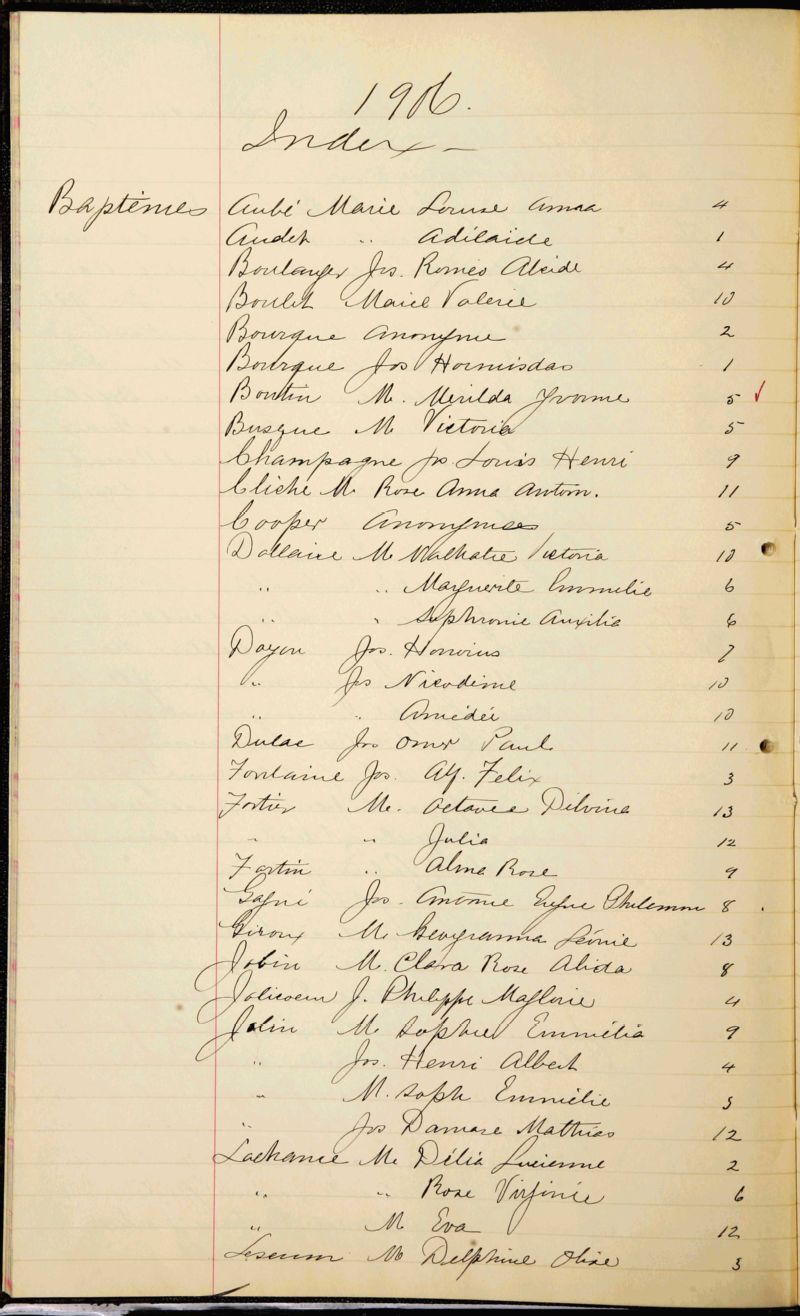 1906.
Index —
Baptêmes Aubé Marie Louise Anna 4
Audet " Adélaïde 1
Boulanger Jos. Roméo Alcide 4
Boulet Marie Valerie 10
Bourque Anonyme 2
Bourque Jos Hormisdas 1
Boutin M. Merilda Yvonne 5 ✓
Busque M Victoria 5
Champagne Jos Louis Henri 9
Cliche M. Rose Anna Anton. 11
Cooper Anonymes 5
Dallaire M. Nathalie Victoria 10
" " Marguerite Emmelie 6
" " Sophronie Auxilia 6
Doyon Jos. Honorius 7
" Jos Nicodème 10
" " Amédée 10
Dulac Jos Omer Paul 11
Fontaine Jos. Alf. Felix 3
Fortier M. Octavee Dilvina 13
" " Julia 12
Fortin " Alma Rose 9
Gagné Jos. Antonie Eugne Philemon 8
Giroux M. Georgianna Léonie 13
Jobin M. Clara Rose Alida 8
Jolicoeur J. Philippe Magloire 4
Jolin M. Sophie Emmélia 9
" Jos. Henri Albert 4
" M. Soph Emmélie 3
" Jos Damase Mathias 12
Lachance M. Délia Lucienne 2
" " Rose Virginie 6
" M Eva 12
M Delphine Olive 3